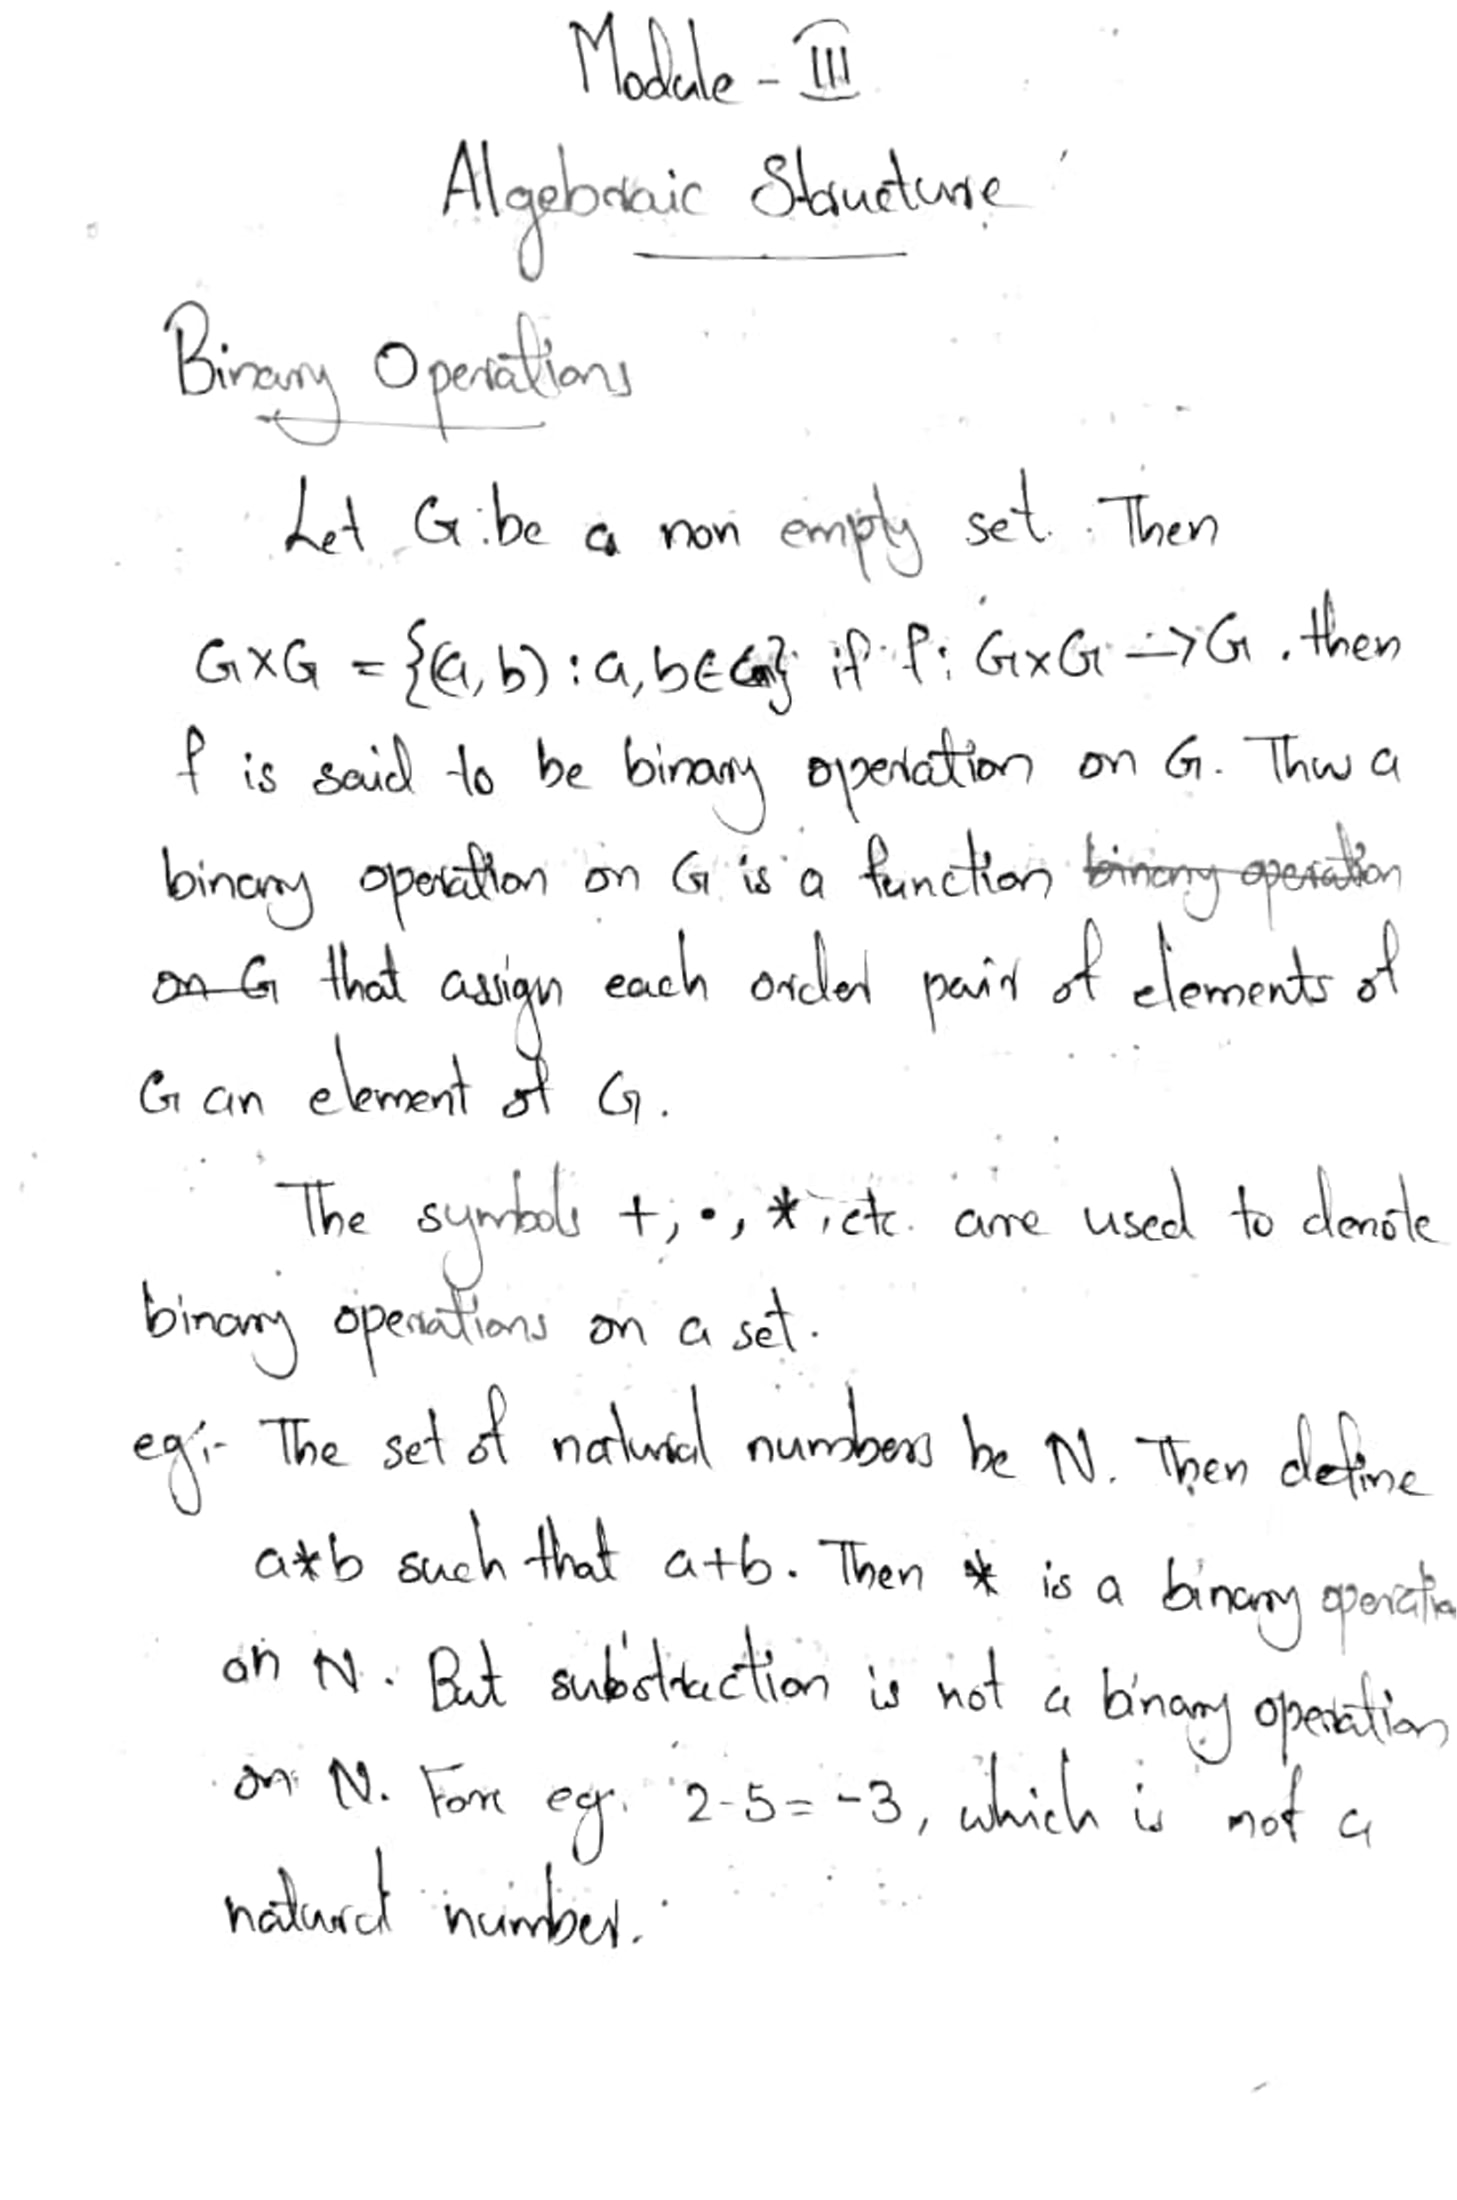 Module - III
Algebraic Structure
Binary Operations
Let G be a non empty set. Then
G×G = {(a, b) : a, b ∈ G} if f : G×G → G. then
f is said to be binary operation on G. Thus a
binary operation on G is a function ~~binary operation~~
~~on G~~ that assign each orded pair of elements of
G an element of G.
The symbols +, •, *, etc. are used to denote
binary operations on a set.
eg:- The set of natural numbers be N. Then define
a*b such that a+b. Then * is a binary operatio
on N. But substraction is not a binary operation
on N. For eg. 2-5 = -3, which is not a
natural number.